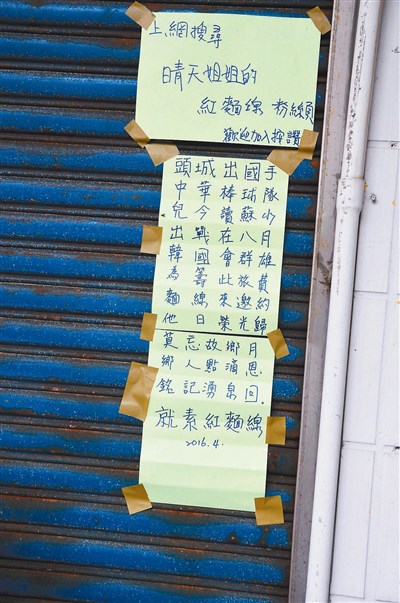 上網搜尋
晴天姐姐的
紅麵線 粉絲頁
歡迎加入按讚
頭城出國手
中華棒球隊
兒今讀蘇小
出戰在八月
韓國會群雄
為籌此旅費
麵線來邀約
他日榮光歸
莫忘故鄉月
鄉人點滴恩.
銘記湧泉回.
就素紅麵線
2016.4.